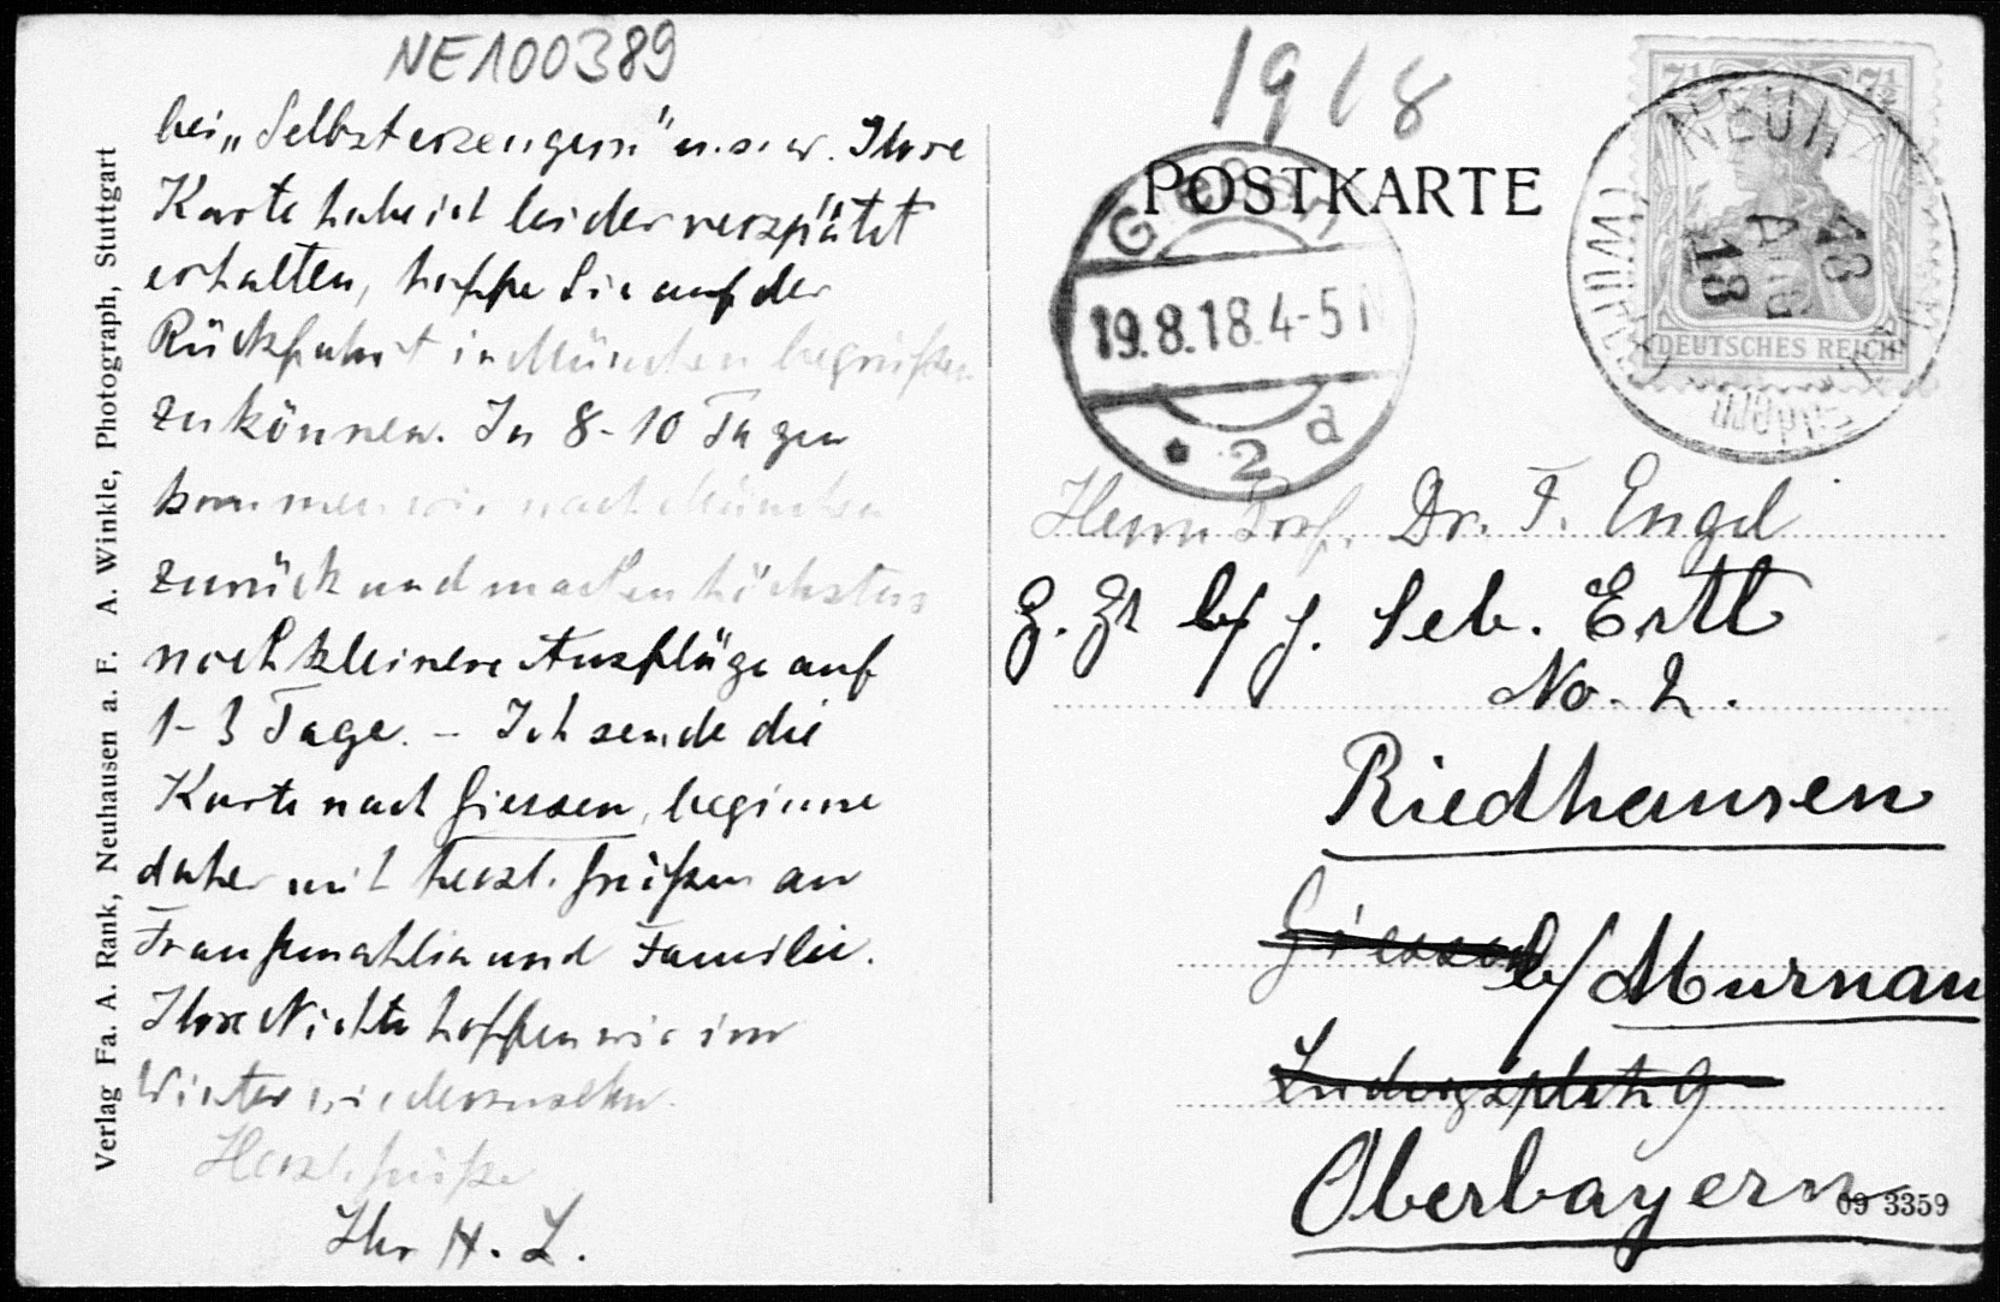 NE100389
bei „Selbsterzeugern" u.s.w. Ihre
Karte habe ich leider verspätet
erhalten, hoffe Sie auf der
Rückfahrt in München begrüßen
zu können. In 8-10 Tagen
kommen wir nach München
zurück und machen höchstens
noch kleinere Ausflüge auf
1-3 Tage. – Ich sende die
Karte nach Giessen, beginne
daher mit herzl. Grüßen an
Frau Gemahlin und Familie.
Ihre Nichte hoffen wir im
Winter wiederzusehen.
Herzl. Grüße
Ihr H. L.
Verlag Fa. A. Rank, Neuhausen a. F. A. Winkle, Photograph, Stuttgart
1918
POSTKARTE
19.8.18. 4-5 N
* 2 a
7½ 7½
DEUTSCHES REICH
18 AUG 18
Herrn Prof. Dr. F. Engel
z. Zt b/ J. Seb. Ertl
No. 2.
Riedhausen
Giessen b/ Murnau
Ludwigsplatz 9
Oberbayern
09 3359